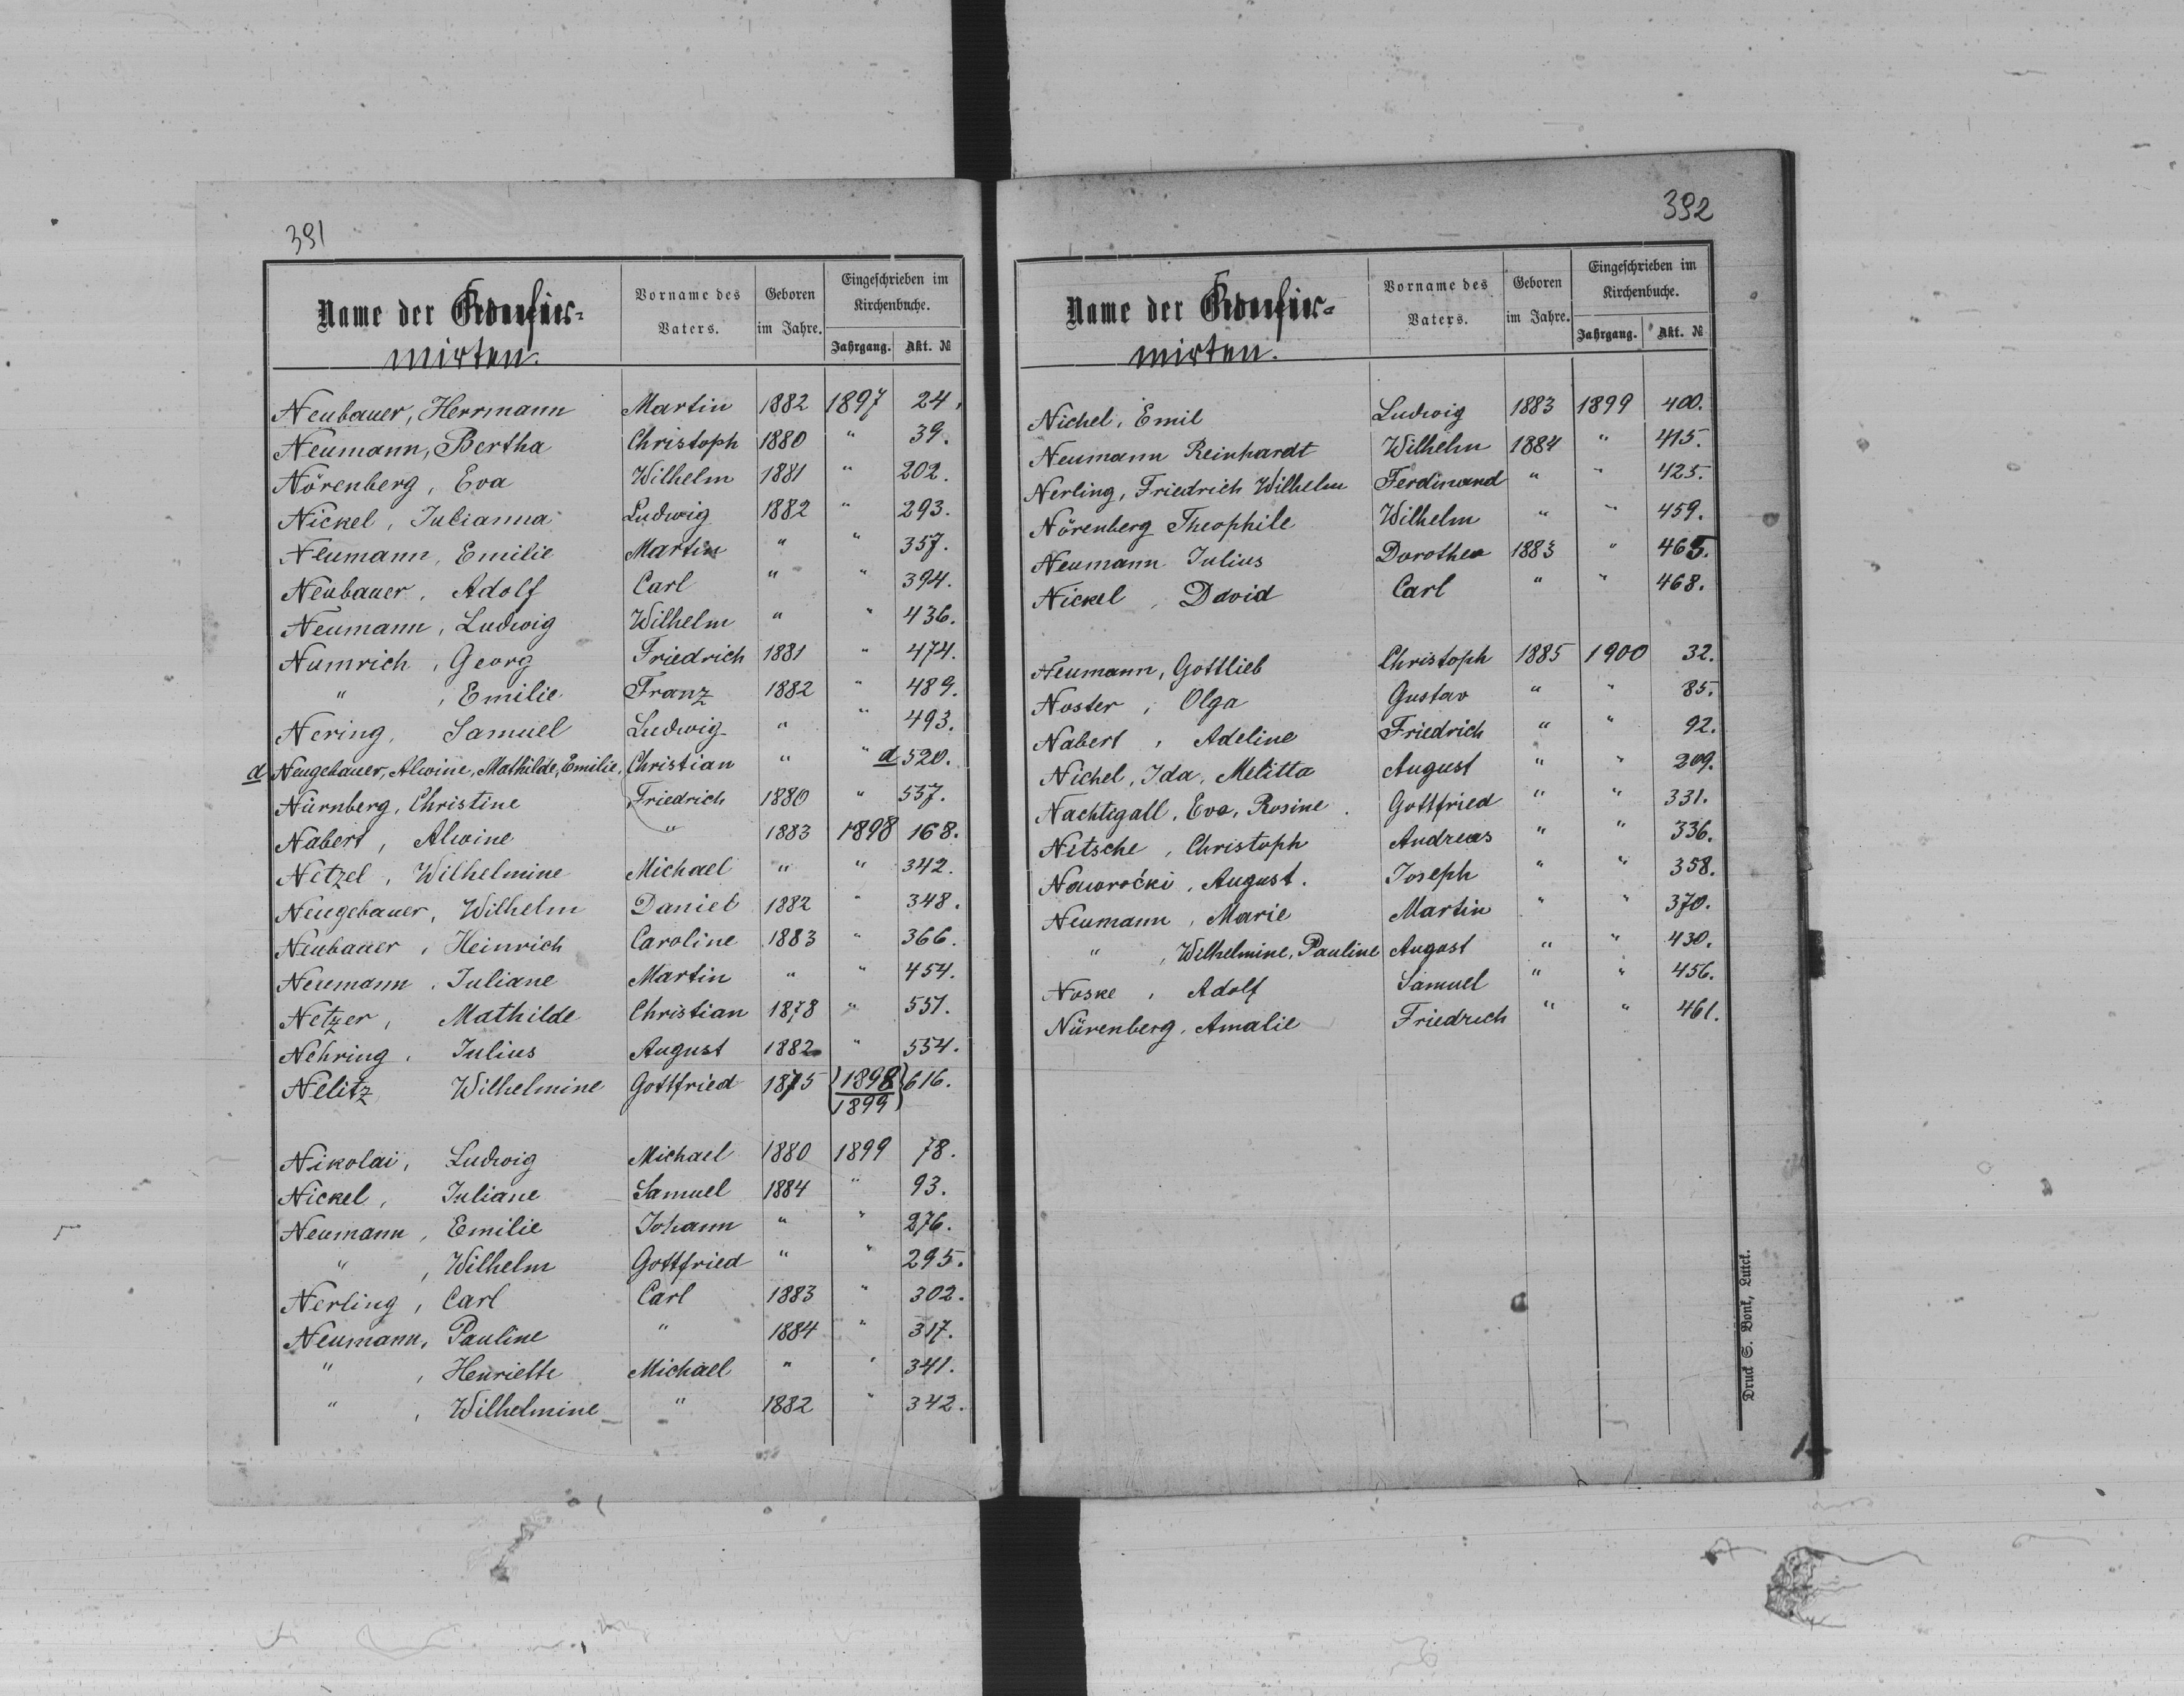 391
Name der Konfir-
mirten.
Vorname des
Vaters.
Geboren
im Jahre.
Eingeschrieben im
Kirchenbuche.
Jahrgang. Akt. №
Neubauer, Herrmann Martin 1882 1897 24.
Neumann, Bertha Christoph 1880 " 39.
Nörenberg, Eva Wilhelm 1881 " 202.
Nickel, Julianna Ludwig 1882 " 293.
Neumann, Emilie Martin " " 357.
Neubauer, Adolf Carl " " 394.
Neumann, Ludwig Wilhelm " " 436.
Numrich, Georg Friedrich 1881 " 474.
" , Emilie Franz 1882 " 489.
Nering, Samuel Ludwig " " 493.
a Neugebauer, Alwine, Mathilde, Emilie, Christian " " a 520.
Nürnberg, Christine Friedrich 1880 " 537.
Nabert, Alwine " 1883 1898 168.
Netzel, Wilhelmine Michael " " 342.
Neugebauer, Wilhelm Daniel 1882 " 348.
Neubauer, Heinrich Caroline 1883 " 366.
Neumann, Juliane Martin " " 454.
Netzer, Mathilde Christian 1878 " 551.
Nehring, Julius August 1882 " 554.
Nelitz Wilhelmine Gottfried 1875 1898 616.
1899
Nikolai, Ludwig Michael 1880 1899 78.
Nickel, Juliane Samuel 1884 " 93.
Neumann, Emilie Johann " " 276.
" , Wilhelm Gottfried " " 295.
Nerling, Carl Carl 1883 " 302.
Neumann, Pauline " 1884 " 317.
" , Henriette Michael " " 341.
" , Wilhelmine " 1882 " 342.
392
Name der Konfir-
mirten.
Vorname des
Vaters.
Geboren
im Jahre.
Eingeschrieben im
Kirchenbuche.
Jahrgang. Akt. №
Nichel, Emil Ludwig 1883 1899 400.
Neumann Reinhardt Wilhelm 1884 " 415.
Nerling, Friedrich Wilhelm Ferdinand " " 425.
Nörenberg Theophile Wilhelm " " 459.
Neumann Julius Dorothea 1883 " 465.
Nickel, David Carl " " 468.
Neumann, Gottlieb Christoph 1885 1900 32.
Noster, Olga Gustav " " 85.
Nabert, Adeline Friedrich " " 92.
Nichel, Ida, Melitta August " " 209.
Nachtigall, Eva, Rosine. Gottfried " " 331.
Nitsche, Christoph Andreas " " 336.
Naworočki, August. Joseph " " 358.
Neumann, Marie Martin " " 370.
" , Wilhelmine, Pauline August " " 430.
Noske, Adolf Samuel " " 456.
Nürenberg, Amalie Friedrich " " 461.
Druck S. Bonk, Lutck.